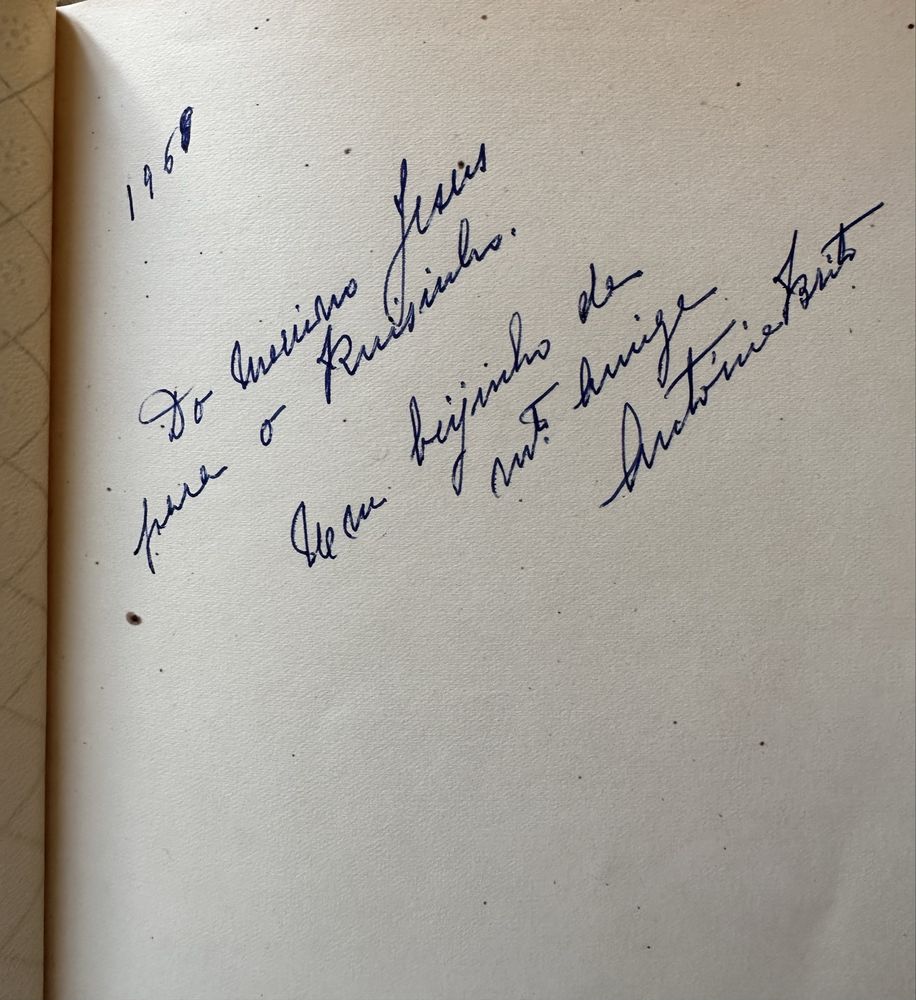 1968
Do menino Jesus
para o Ruisinho.
Um beijinho de
mtº amiga
Antónia Brito